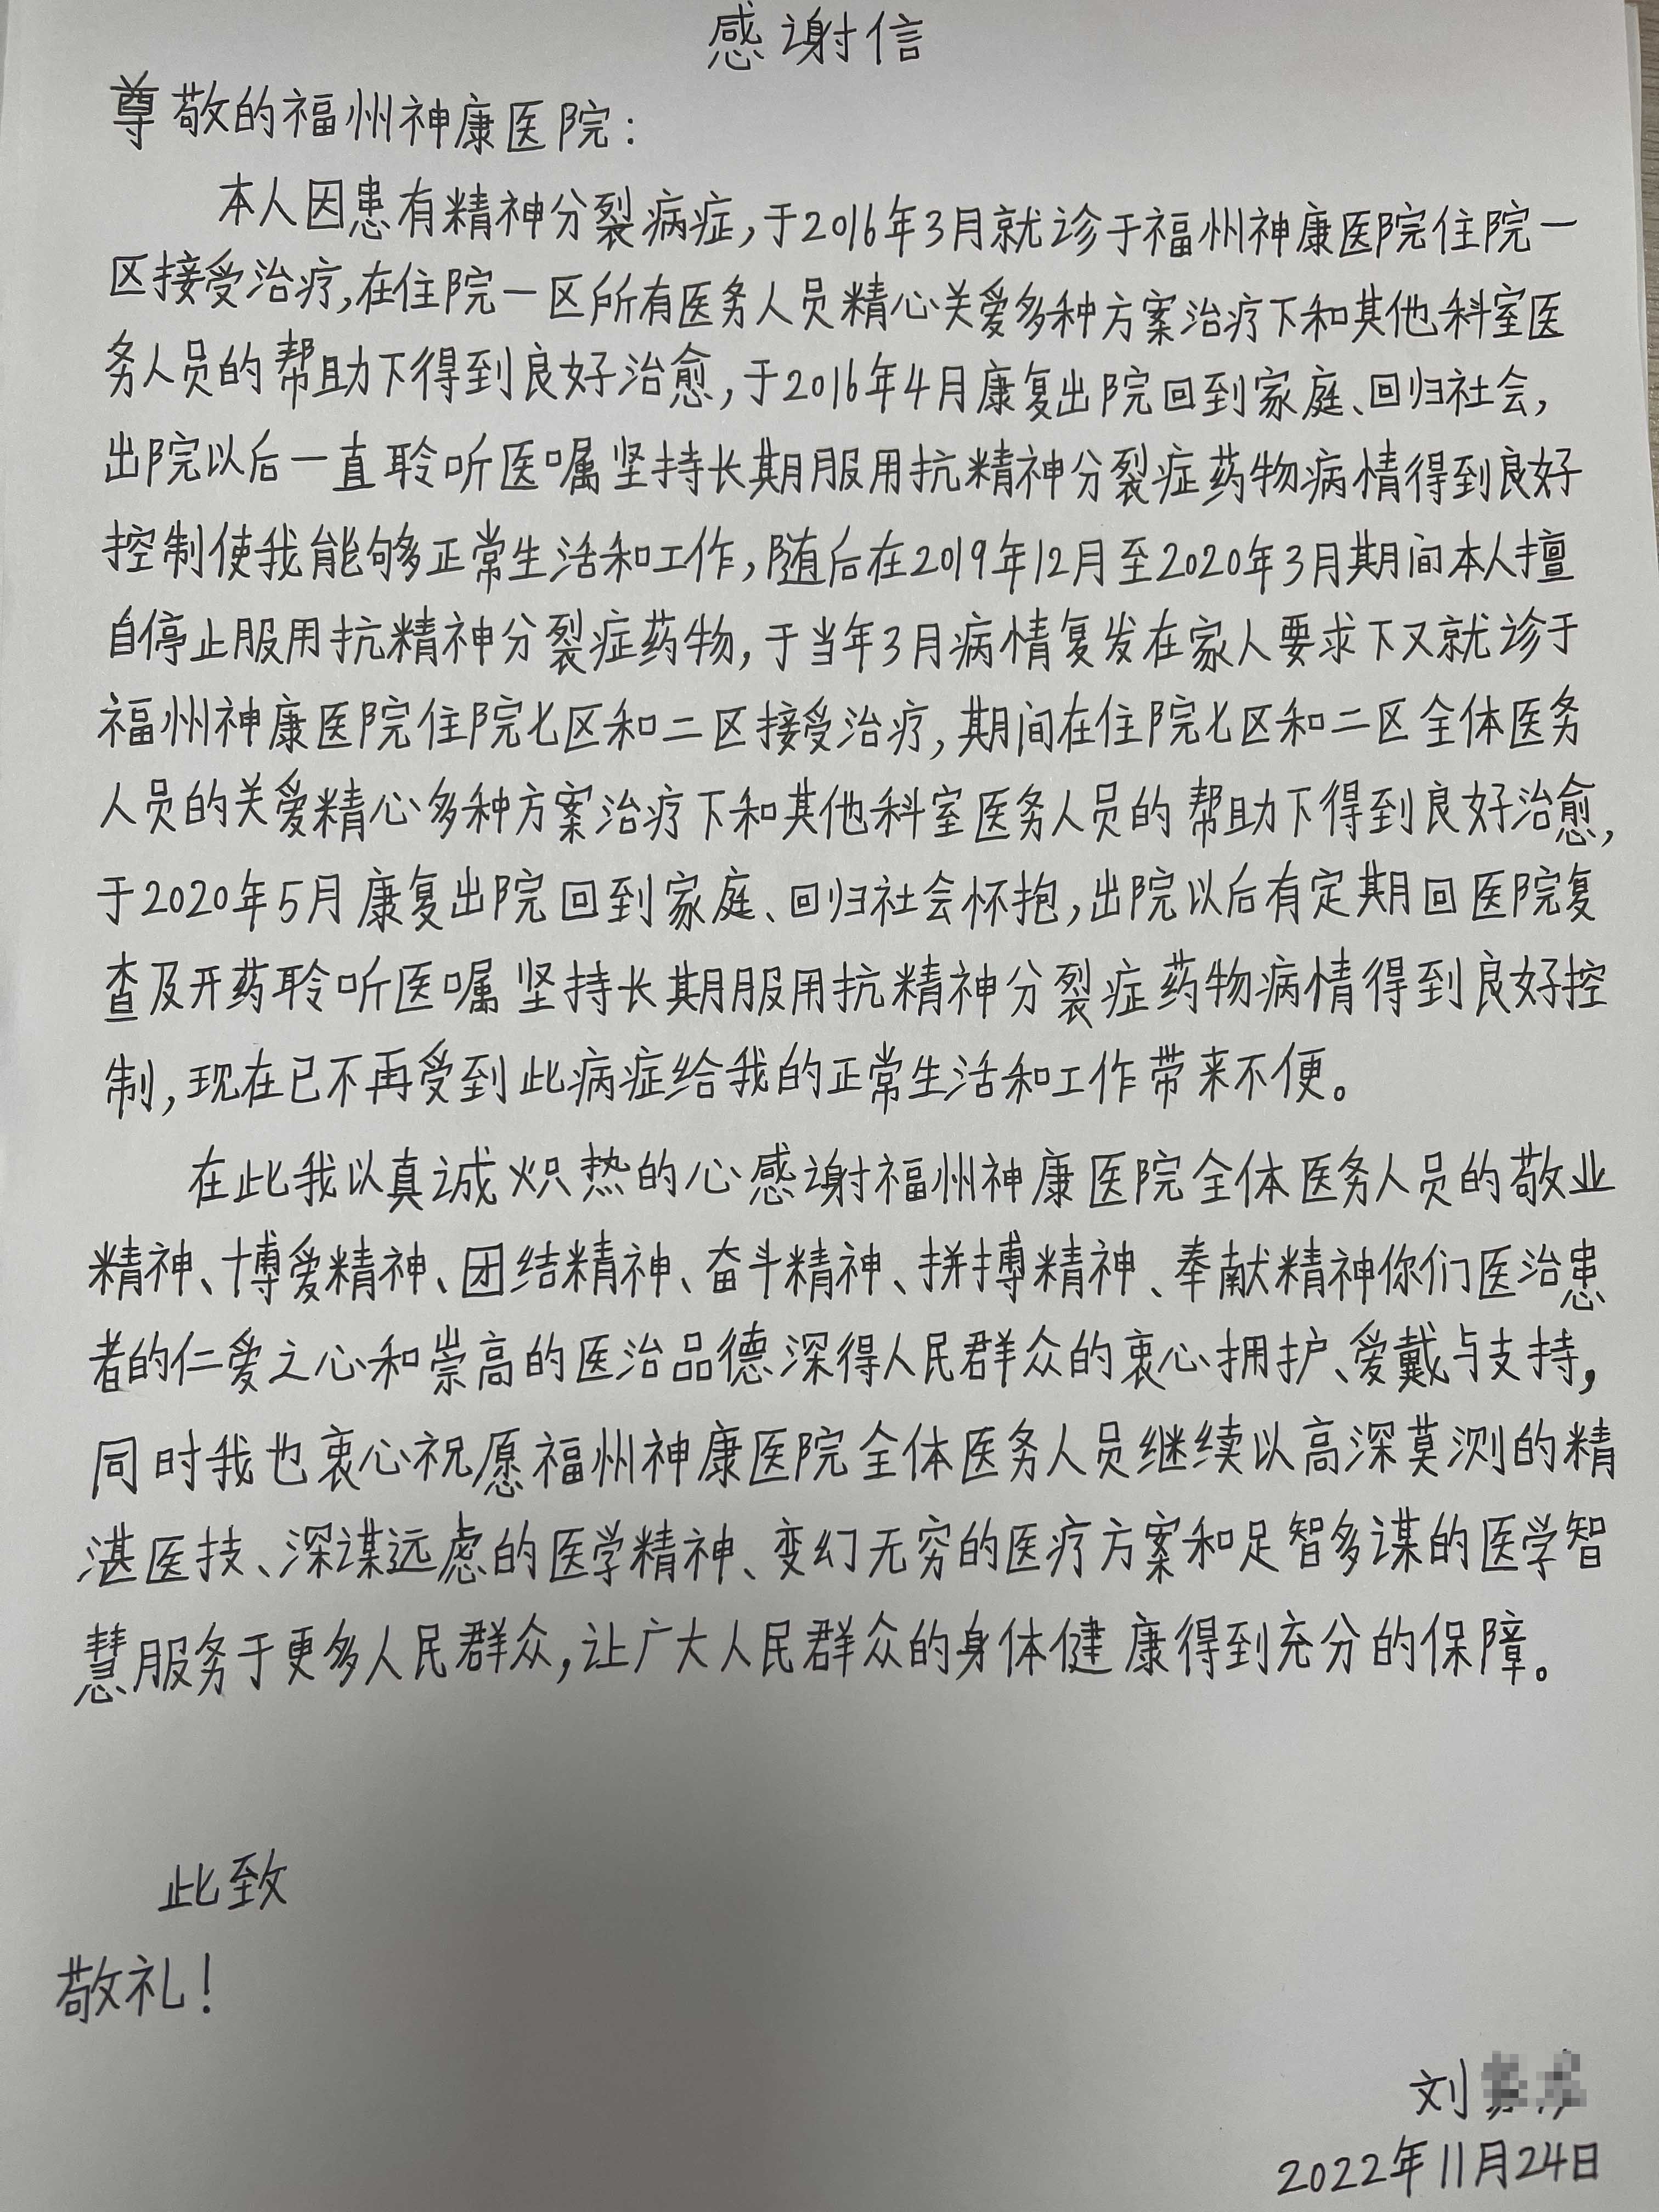 感谢信
尊敬的福州神康医院：
本人因患有精神分裂病症,于2016年3月就诊于福州神康医院住院一
区接受治疗,在住院一区所有医务人员精心关爱多种方案治疗下和其他科室医
务人员的帮助下得到良好治愈,于2016年4月康复出院回到家庭、回归社会,
出院以后一直聆听医嘱坚持长期服用抗精神分裂症药物病情得到良好
控制使我能够正常生活和工作,随后在2019年12月至2020年3月期间本人擅
自停止服用抗精神分裂症药物,于当年3月病情复发在家人要求下又就诊于
福州神康医院住院七区和二区接受治疗,期间在住院七区和二区全体医务
人员的关爱精心多种方案治疗下和其他科室医务人员的帮助下得到良好治愈,
于2020年5月康复出院回到家庭、回归社会怀抱,出院以后有定期回医院复
查及开药聆听医嘱坚持长期服用抗精神分裂症药物病情得到良好控
制,现在已不再受到此病症给我的正常生活和工作带来不便。
在此我以真诚炽热的心感谢福州神康医院全体医务人员的敬业
精神、博爱精神、团结精神、奋斗精神、拼搏精神、奉献精神你们医治患
者的仁爱之心和崇高的医治品德深得人民群众的衷心拥护、爱戴与支持,
同时我也衷心祝愿福州神康医院全体医务人员继续以高深莫测的精
湛医技、深谋远虑的医学精神、变幻无穷的医疗方案和足智多谋的医学智
慧服务于更多人民群众,让广大人民群众的身体健康得到充分的保障。
此致
敬礼！
刘
2022年11月24日